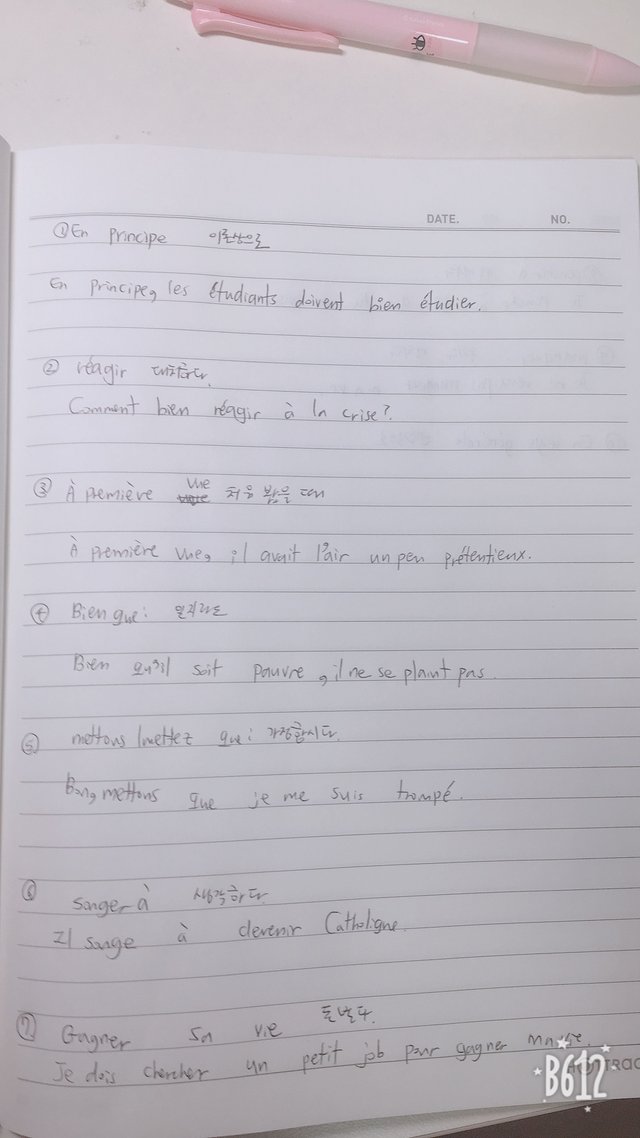 DATE. NO.
① En principe 이론상으로
En principe, les étudiants doivent bien étudier.
② réagir 대처하다.
Comment bien réagir à la crise?
③ À première vue 처음 봤을 때
À première vue, il avait l'air un peu prétentieux.
④ Bien que: 일지라도
Bien qu'il soit pauvre, il ne se plaint pas.
⑤ mettons/mettez que: 가정합시다.
Bon, mettons que je me suis trompé.
⑥ Songer à 생각하다
Il songe à devenir Catholique.
⑦ Gagner sa vie 돈벌다.
Je dois chercher un petit job pour gagner ma vie.
B612